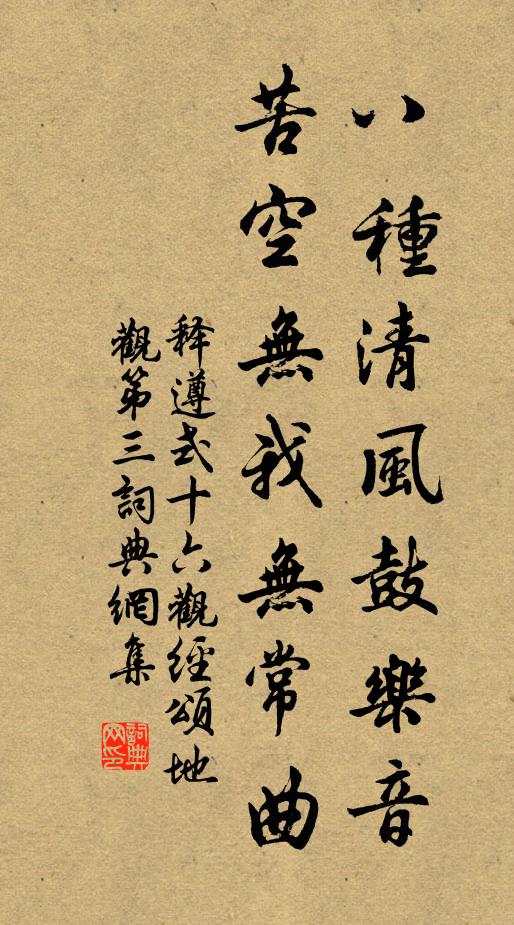 八種清風鼓樂音
苦空無我無常曲
释遵式十六觀經頌地
觀第三詞典網集
詞典網印